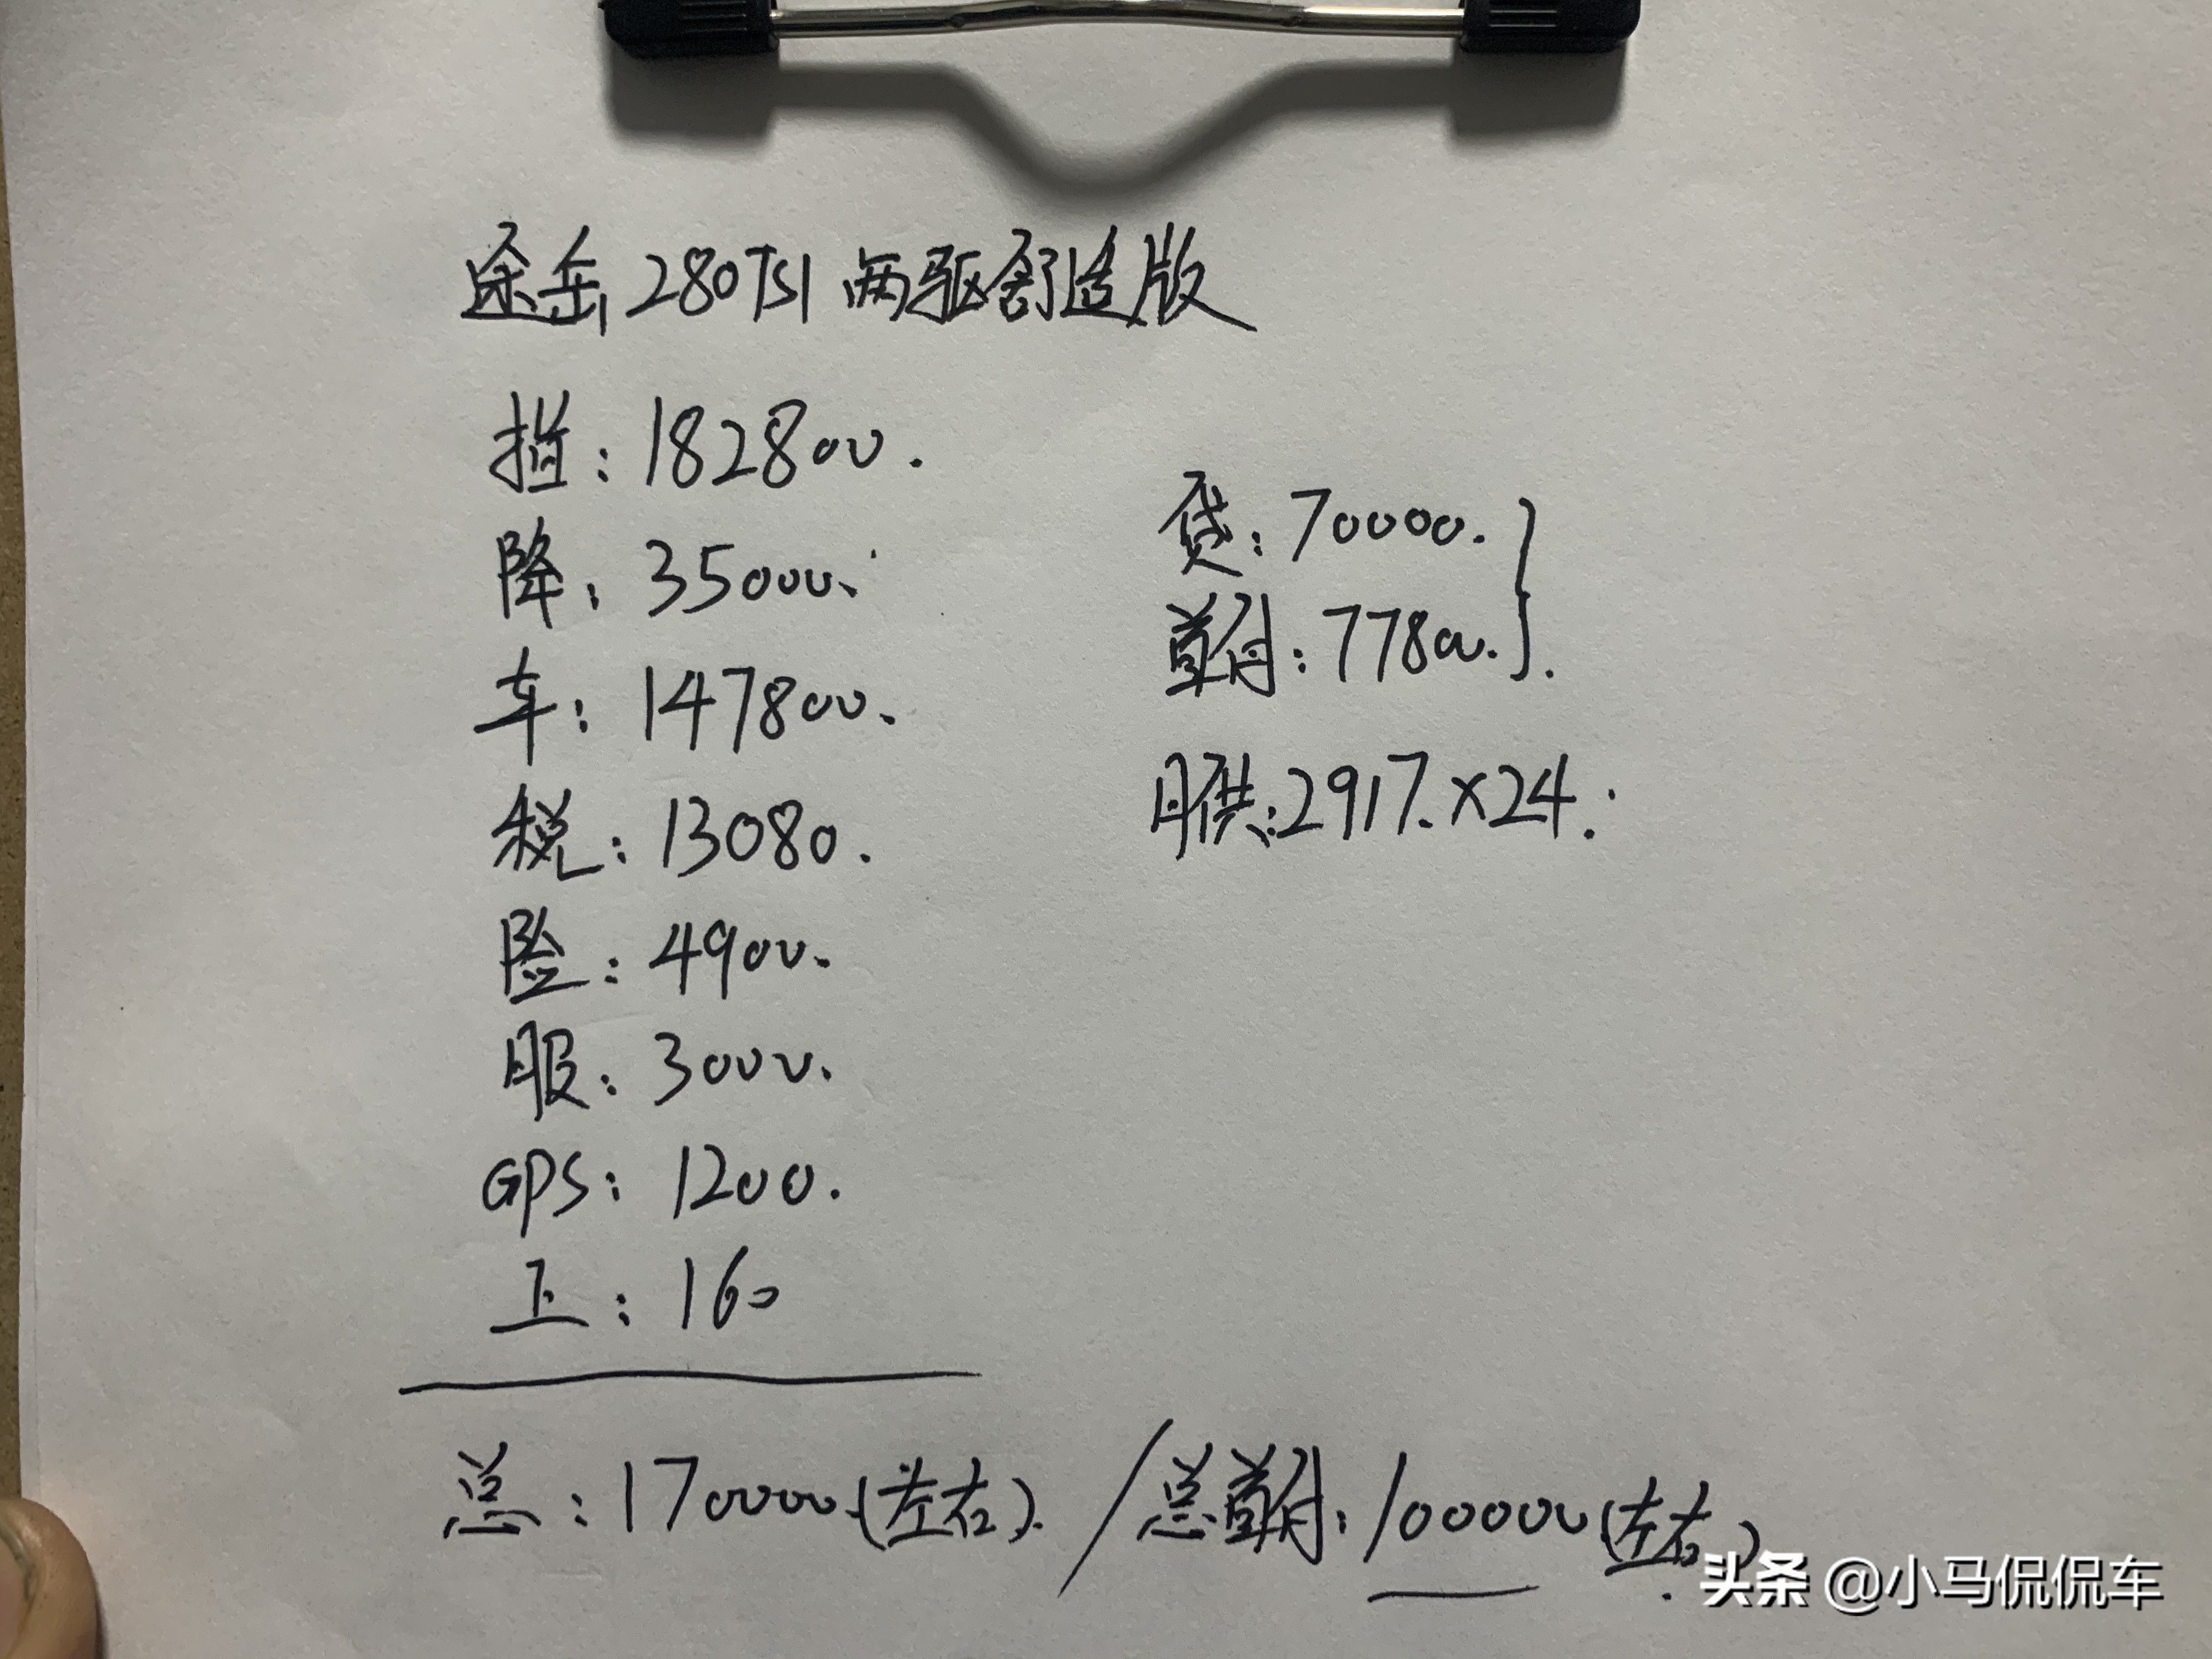 途岳280TSI 两驱舒适版
指:182800.
降:35000.
车:147800.
税:13080.
险:4900.
服:3000.
GPS:1200.
上:160
贷:70000.
首付:77800.
月供:2917.×24.
总:170000(左右).
/总首付:100000(左右)
头条 @小马侃侃车